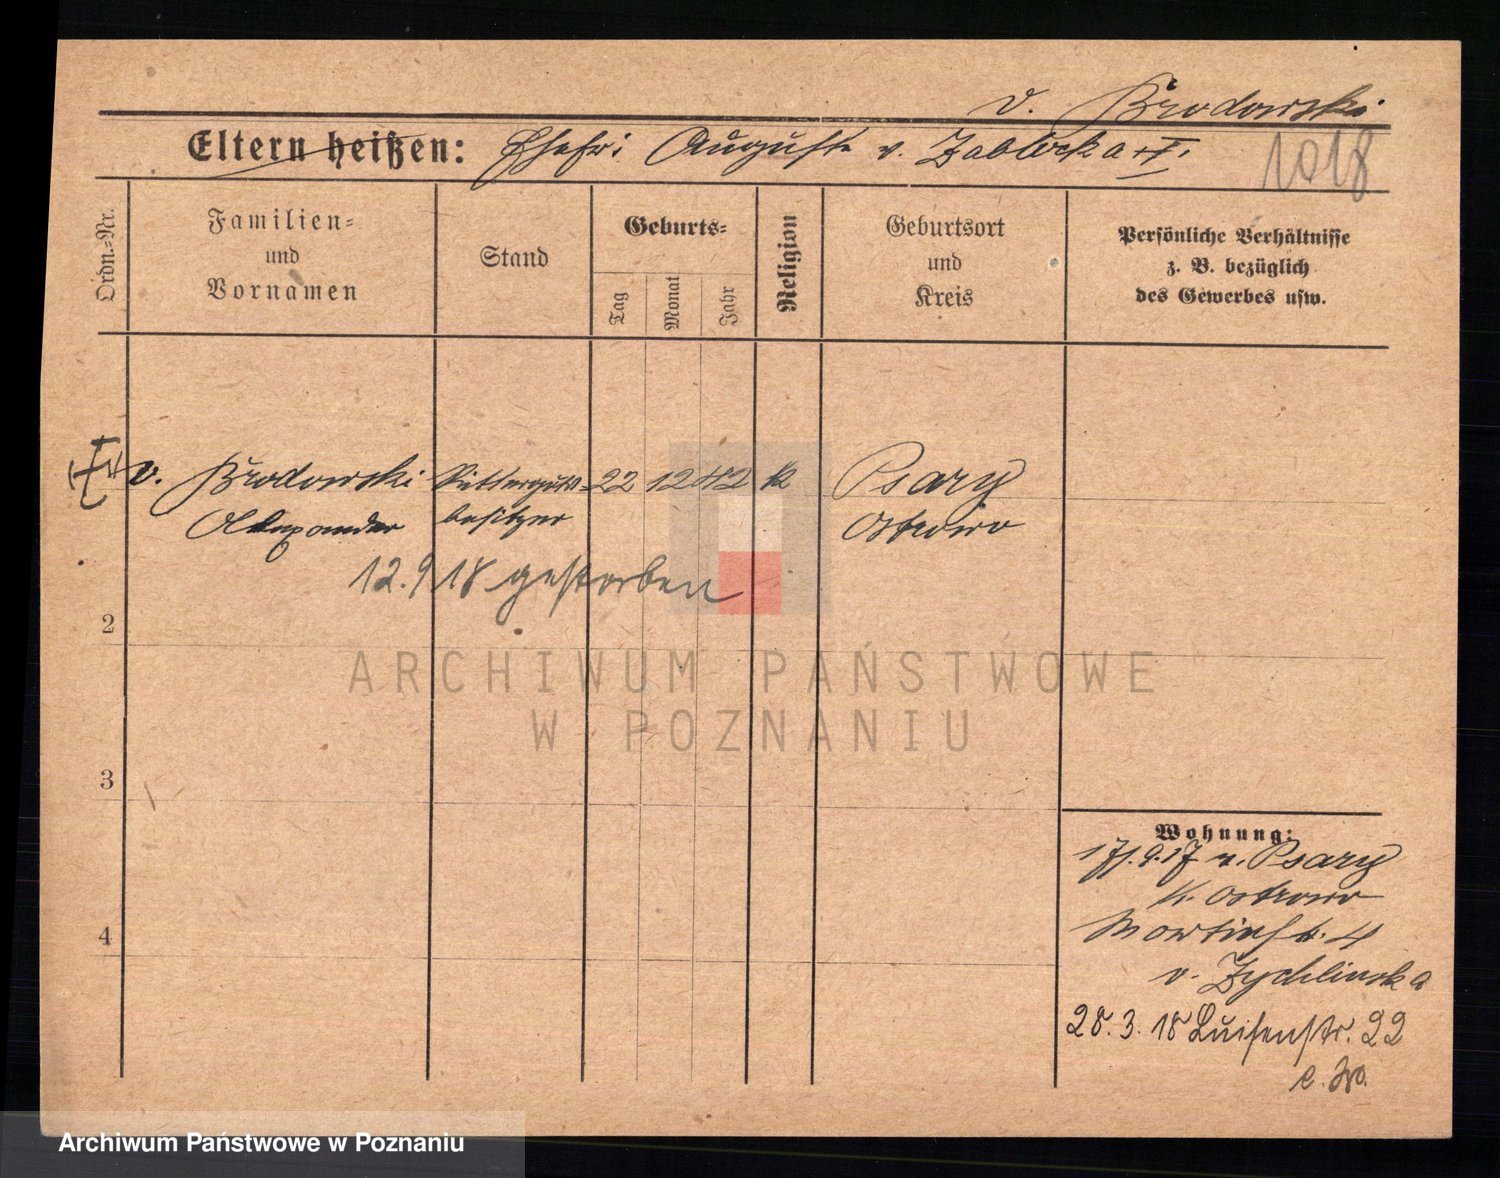 v. Brodowski
Eltern heißen: Ehefr: Auguste v. Zablocka †.
1018
Ordn.=Nr.
Familien=
und
Vornamen
Stand
Geburts=
Tag
Monat
Jahr
Religion
Geburtsort
und
Kreis
Persönliche Verhältnisse
z. B. bezüglich
des Gewerbes usw.
v. Brodowski Ritterguts= 22 12 42 k Psary
Alexander besitzer Ostrowo
12.9.18 gestorben
2
3
4
Wohnung:
17.9.17 v. Psary
K. Ostrowo
Martinstr. 4
v. Zychlinska
28.3.18 Luisenstr. 22
e. Wo.
ARCHIWUM PAŃSTWOWE
W POZNANIU
Archiwum Państwowe w Poznaniu